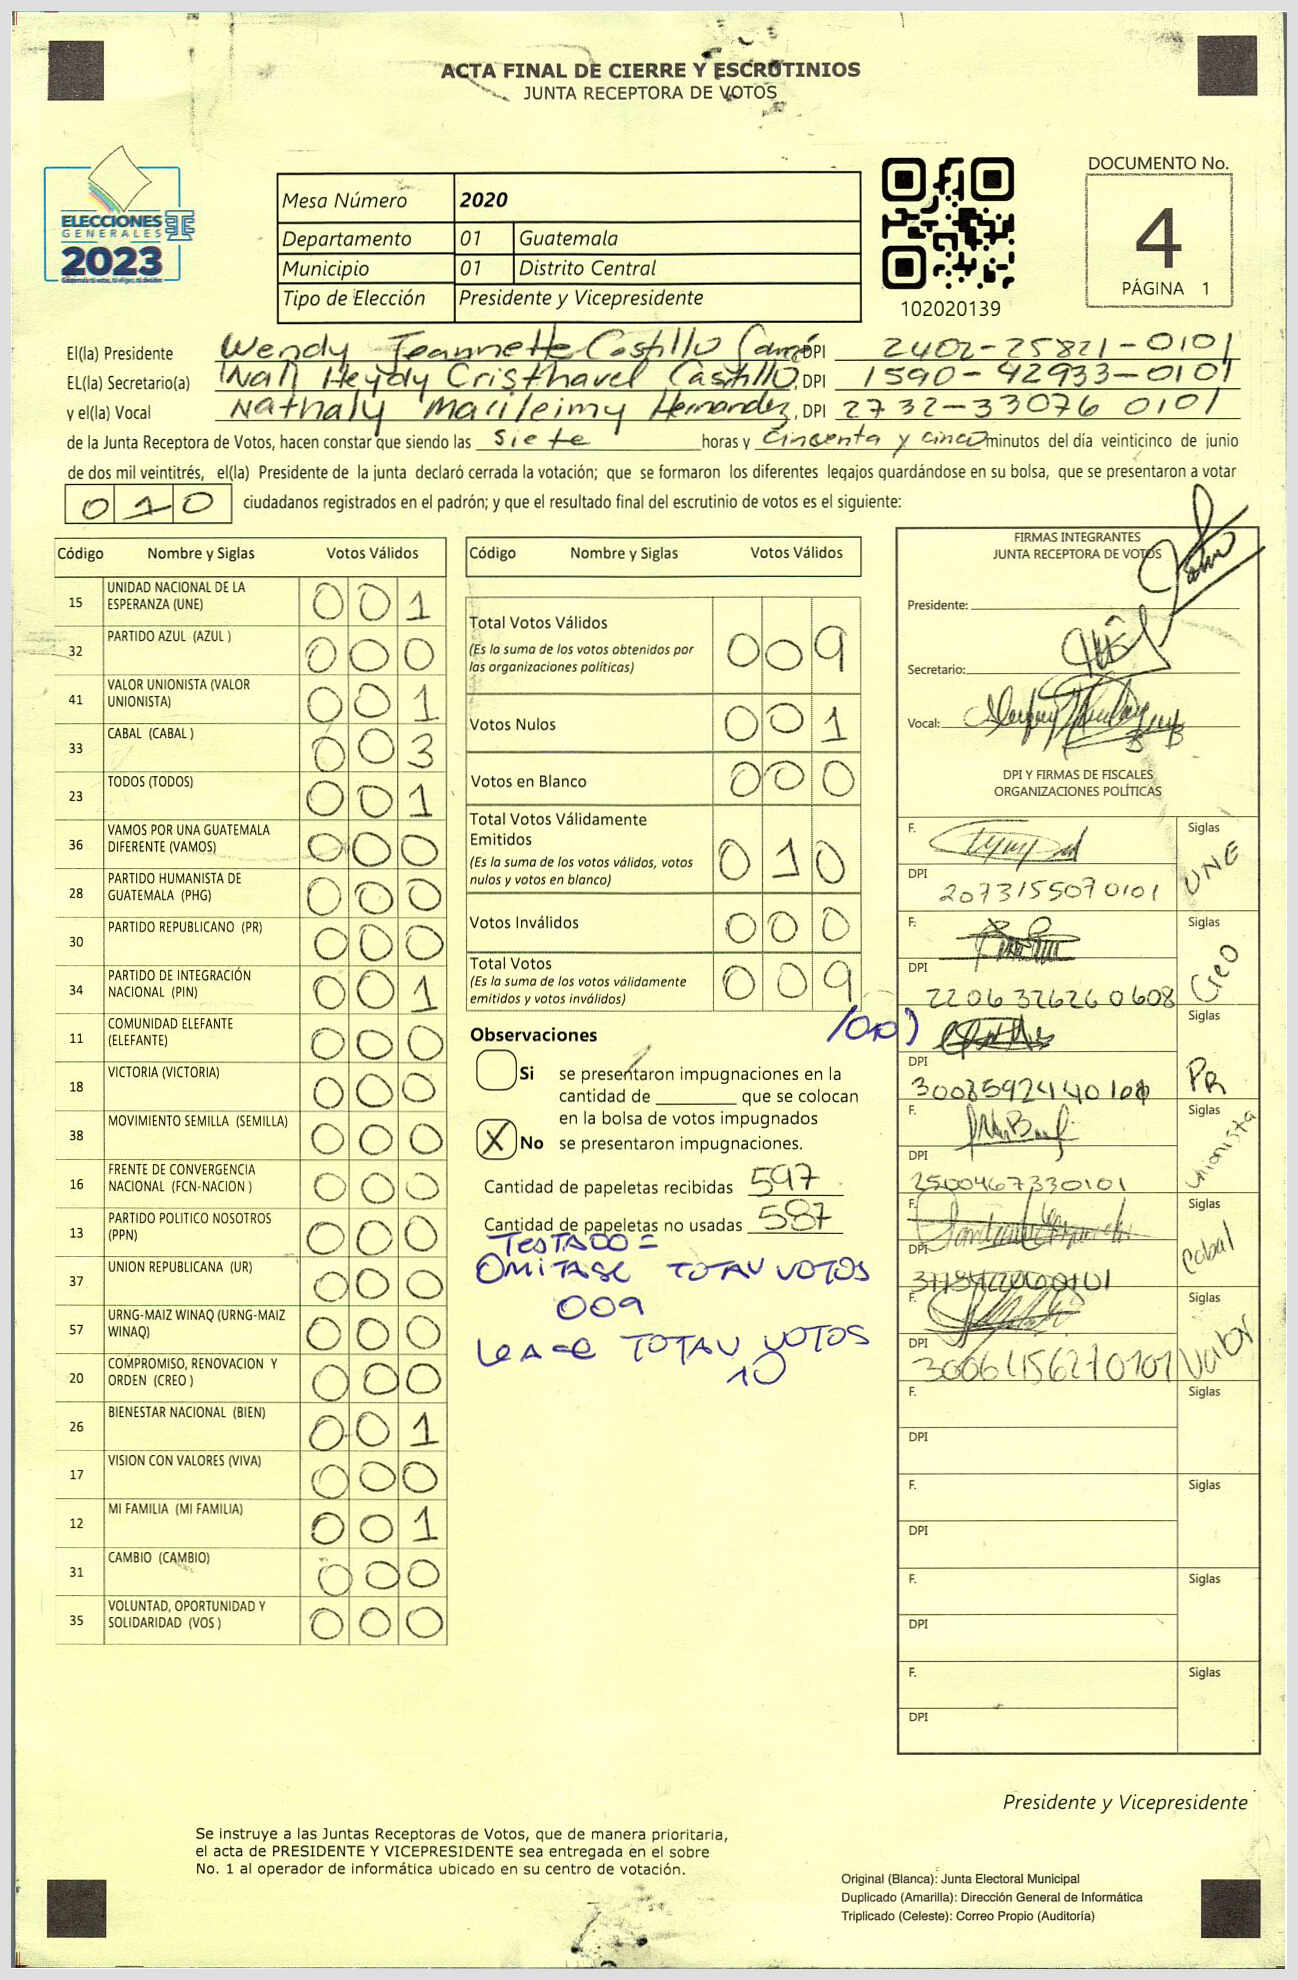 ACTA FINAL DE CIERRE Y ESCRUTINIOS
JUNTA RECEPTORA DE VOTOS
ELECCIONES
GENERALES
2023
Mesa Número 2020
Departamento 01 Guatemala
Municipio 01 Distrito Central
Tipo de Elección Presidente y Vicepresidente
102020139
DOCUMENTO No.
4
PÁGINA 1
El(la) Presidente Wendy Jeannette Castillo DPI 2402-25821-0101
EL(la) Secretario(a) Heydy Cristhavel Castillo, DPI 1590-42933-0101
y el(la) Vocal Nathaly Marileimy Hernandez, DPI 2732-33076 0101
de la Junta Receptora de Votos, hacen constar que siendo las siete horas y cincuenta y cinco minutos del día veinticinco de junio
de dos mil veintitrés, el(la) Presidente de la junta declaró cerrada la votación; que se formaron los diferentes legajos guardándose en su bolsa, que se presentaron a votar
010 ciudadanos registrados en el padrón; y que el resultado final del escrutinio de votos es el siguiente:
Código Nombre y Siglas Votos Válidos
15 UNIDAD NACIONAL DE LA ESPERANZA (UNE) 001
32 PARTIDO AZUL (AZUL ) 000
41 VALOR UNIONISTA (VALOR UNIONISTA) 001
33 CABAL (CABAL ) 003
23 TODOS (TODOS) 001
36 VAMOS POR UNA GUATEMALA DIFERENTE (VAMOS) 000
28 PARTIDO HUMANISTA DE GUATEMALA (PHG) 000
30 PARTIDO REPUBLICANO (PR) 000
34 PARTIDO DE INTEGRACIÓN NACIONAL (PIN) 001
11 COMUNIDAD ELEFANTE (ELEFANTE) 000
18 VICTORIA (VICTORIA) 000
38 MOVIMIENTO SEMILLA (SEMILLA) 000
16 FRENTE DE CONVERGENCIA NACIONAL (FCN-NACION ) 000
13 PARTIDO POLITICO NOSOTROS (PPN) 000
37 UNION REPUBLICANA (UR) 000
57 URNG-MAIZ WINAQ (URNG-MAIZ WINAQ) 000
20 COMPROMISO, RENOVACION Y ORDEN (CREO ) 000
26 BIENESTAR NACIONAL (BIEN) 001
17 VISION CON VALORES (VIVA) 000
12 MI FAMILIA (MI FAMILIA) 001
31 CAMBIO (CAMBIO) 000
35 VOLUNTAD, OPORTUNIDAD Y SOLIDARIDAD (VOS ) 000
Código Nombre y Siglas Votos Válidos
Total Votos Válidos 009
(Es la suma de los votos obtenidos por
las organizaciones políticas)
Votos Nulos 001
Votos en Blanco 000
Total Votos Válidamente
Emitidos 010
(Es la suma de los votos válidos, votos
nulos y votos en blanco)
Votos Inválidos 000
Total Votos 009
(Es la suma de los votos válidamente
emitidos y votos inválidos)
Observaciones
Si se presentaron impugnaciones en la
cantidad de ________ que se colocan
en la bolsa de votos impugnados
X No se presentaron impugnaciones.
Cantidad de papeletas recibidas 597
Cantidad de papeletas no usadas 587
TESTADO =
OMITASE TOTAL VOTOS
009
LEASE TOTAL VOTOS
10
FIRMAS INTEGRANTES
JUNTA RECEPTORA DE VOTOS
Presidente:
Secretario:
Vocal:
DPI Y FIRMAS DE FISCALES
ORGANIZACIONES POLÍTICAS
F. Siglas UNE
DPI 2073155070101
F. Siglas Creo
DPI 2206326260608
Siglas PR
DPI
F. Siglas Unionista
DPI 2500467330101
F. Siglas Cabal
DPI
F. Siglas Valor
DPI
F. Siglas
DPI
F. Siglas
DPI
F. Siglas
DPI
F. Siglas
DPI
Presidente y Vicepresidente
Se instruye a las Juntas Receptoras de Votos, que de manera prioritaria,
el acta de PRESIDENTE Y VICEPRESIDENTE sea entregada en el sobre
No. 1 al operador de informática ubicado en su centro de votación.
Original (Blanca): Junta Electoral Municipal
Duplicado (Amarilla): Dirección General de Informática
Triplicado (Celeste): Correo Propio (Auditoría)